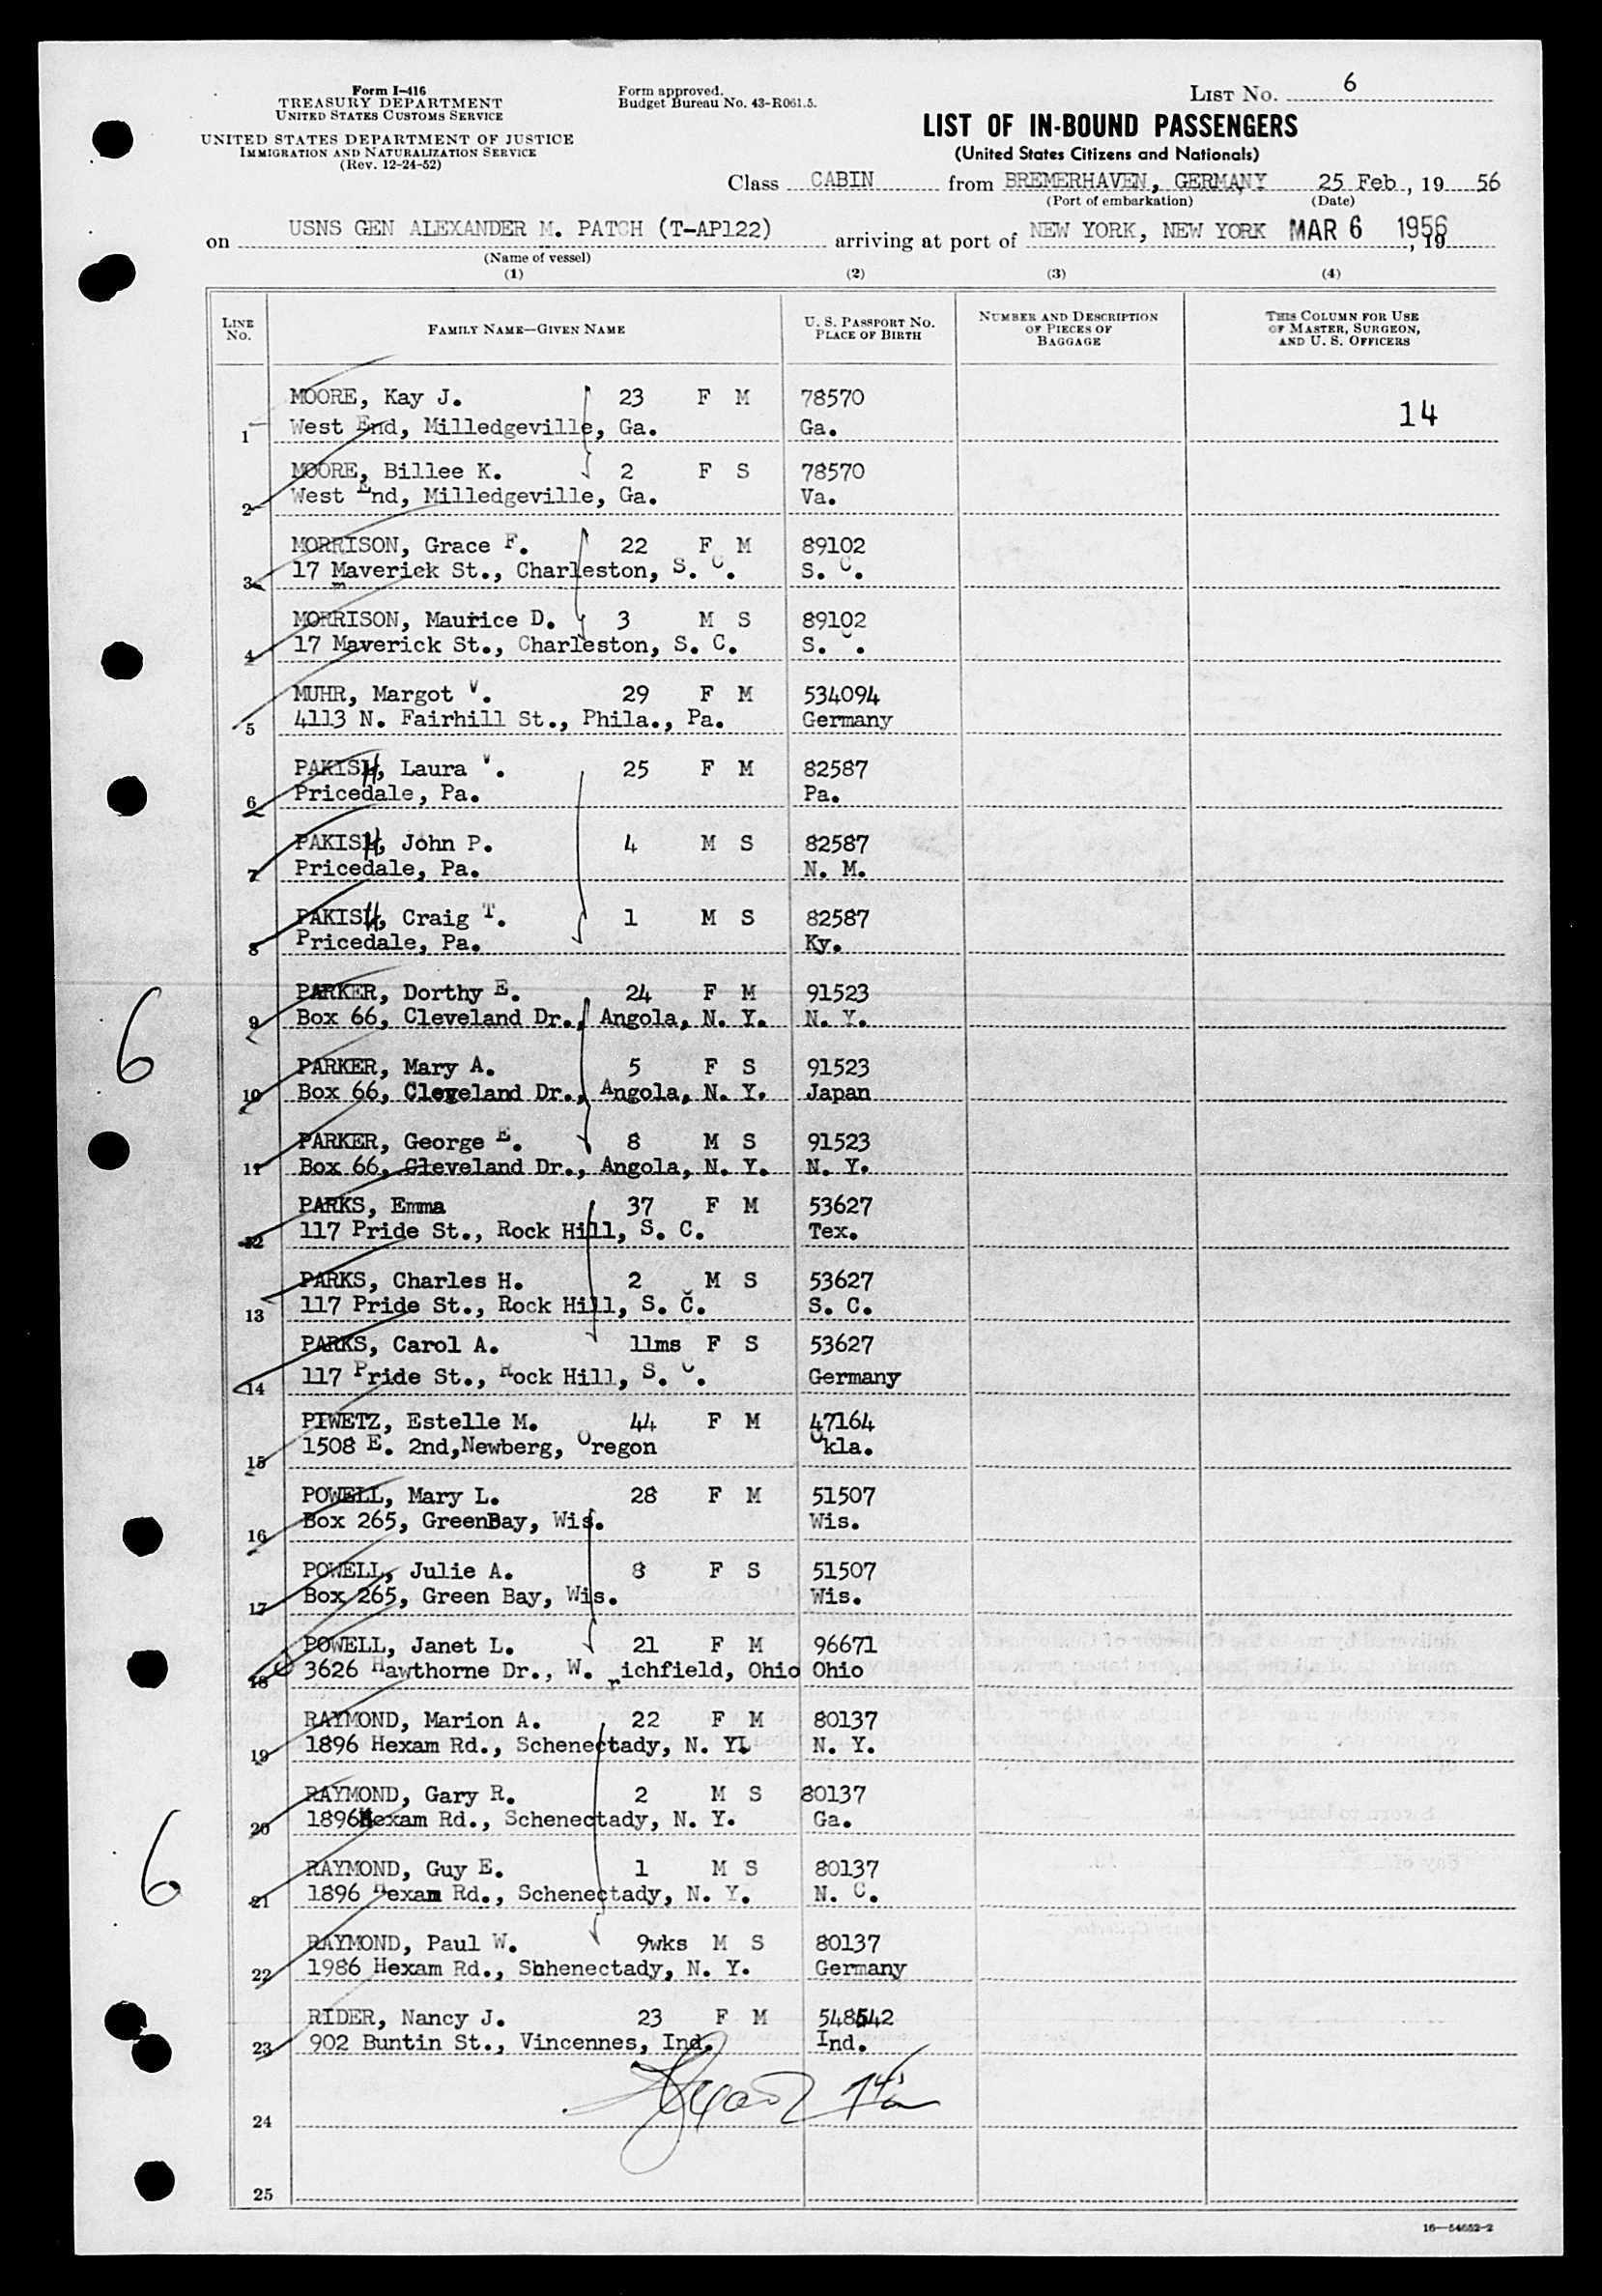 Form I-416
TREASURY DEPARTMENT
UNITED STATES CUSTOMS SERVICE
UNITED STATES DEPARTMENT OF JUSTICE
IMMIGRATION AND NATURALIZATION SERVICE
(Rev. 12-24-52)
Form approved.
Budget Bureau No. 43-R061.5.
LIST NO. 6
LIST OF IN-BOUND PASSENGERS
(United States Citizens and Nationals)
Class CABIN from BREMERHAVEN, GERMANY 25 Feb, 19 56
(Port of embarkation) (Date)
on USNS GEN ALEXANDER M. PATCH (T-AP122) arriving at port of NEW YORK, NEW YORK MAR 6 1956, 19
(Name of vessel)
(1) (2) (3) (4)
LINE NO. FAMILY NAME—GIVEN NAME U. S. PASSPORT NO. PLACE OF BIRTH NUMBER AND DESCRIPTION OF PIECES OF BAGGAGE THIS COLUMN FOR USE OF MASTER, SURGEON, AND U. S. OFFICERS
MOORE, Kay J. 23 F M 78570 14
1 West End, Milledgeville, Ga. Ga.
MOORE, Billee K. 2 F S 78570
2 West End, Milledgeville, Ga. Va.
MORRISON, Grace F. 22 F M 89102
3 17 Maverick St., Charleston, S. C. S. C.
MORRISON, Maurice D. 3 M S 89102
4 17 Maverick St., Charleston, S. C. S. C.
MUHR, Margot W. 29 F M 534094
5 4113 N. Fairhill St., Phila., Pa. Germany
PAKISH, Laura W. 25 F M 82587
6 Pricedale, Pa. Pa.
PAKISH, John P. 4 M S 82587
7 Pricedale, Pa. N. M.
PAKISH, Craig T. 1 M S 82587
8 Pricedale, Pa. Ky.
PARKER, Dorthy E. 24 F M 91523
9 Box 66, Cleveland Dr., Angola, N. Y. N. Y.
PARKER, Mary A. 5 F S 91523
10 Box 66, Cleveland Dr., Angola, N. Y. Japan
PARKER, George E. 8 M S 91523
11 Box 66, Cleveland Dr., Angola, N. Y. N. Y.
PARKS, Emma 37 F M 53627
12 117 Pride St., Rock Hill, S. C. Tex.
PARKS, Charles H. 2 M S 53627
13 117 Pride St., Rock Hill, S. C. S. C.
PARKS, Carol A. 11ms F S 53627
14 117 Pride St., Rock Hill, S. C. Germany
PIWETZ, Estelle M. 44 F M 47164
15 1508 E. 2nd,Newberg, Oregon Okla.
POWELL, Mary L. 28 F M 51507
16 Box 265, GreenBay, Wis. Wis.
POWELL, Julie A. 8 F S 51507
17 Box 265, Green Bay, Wis. Wis.
POWELL, Janet L. 21 F M 96671
18 3626 Hawthorne Dr., W. richfield, Ohio Ohio
RAYMOND, Marion A. 22 F M 80137
19 1896 Hexam Rd., Schenectady, N. Y. N. Y.
RAYMOND, Gary R. 2 M S 80137
20 1896Hexam Rd., Schenectady, N. Y. Ga.
RAYMOND, Guy E. 1 M S 80137
21 1896 Hexam Rd., Schenectady, N. Y. N. C.
RAYMOND, Paul W. 9wks M S 80137
22 1986 Hexam Rd., Shhenectady, N. Y. Germany
RIDER, Nancy J. 23 F M 548642
23 902 Buntin St., Vincennes, Ind. Ind.
24
25
6
6
16—54652-2